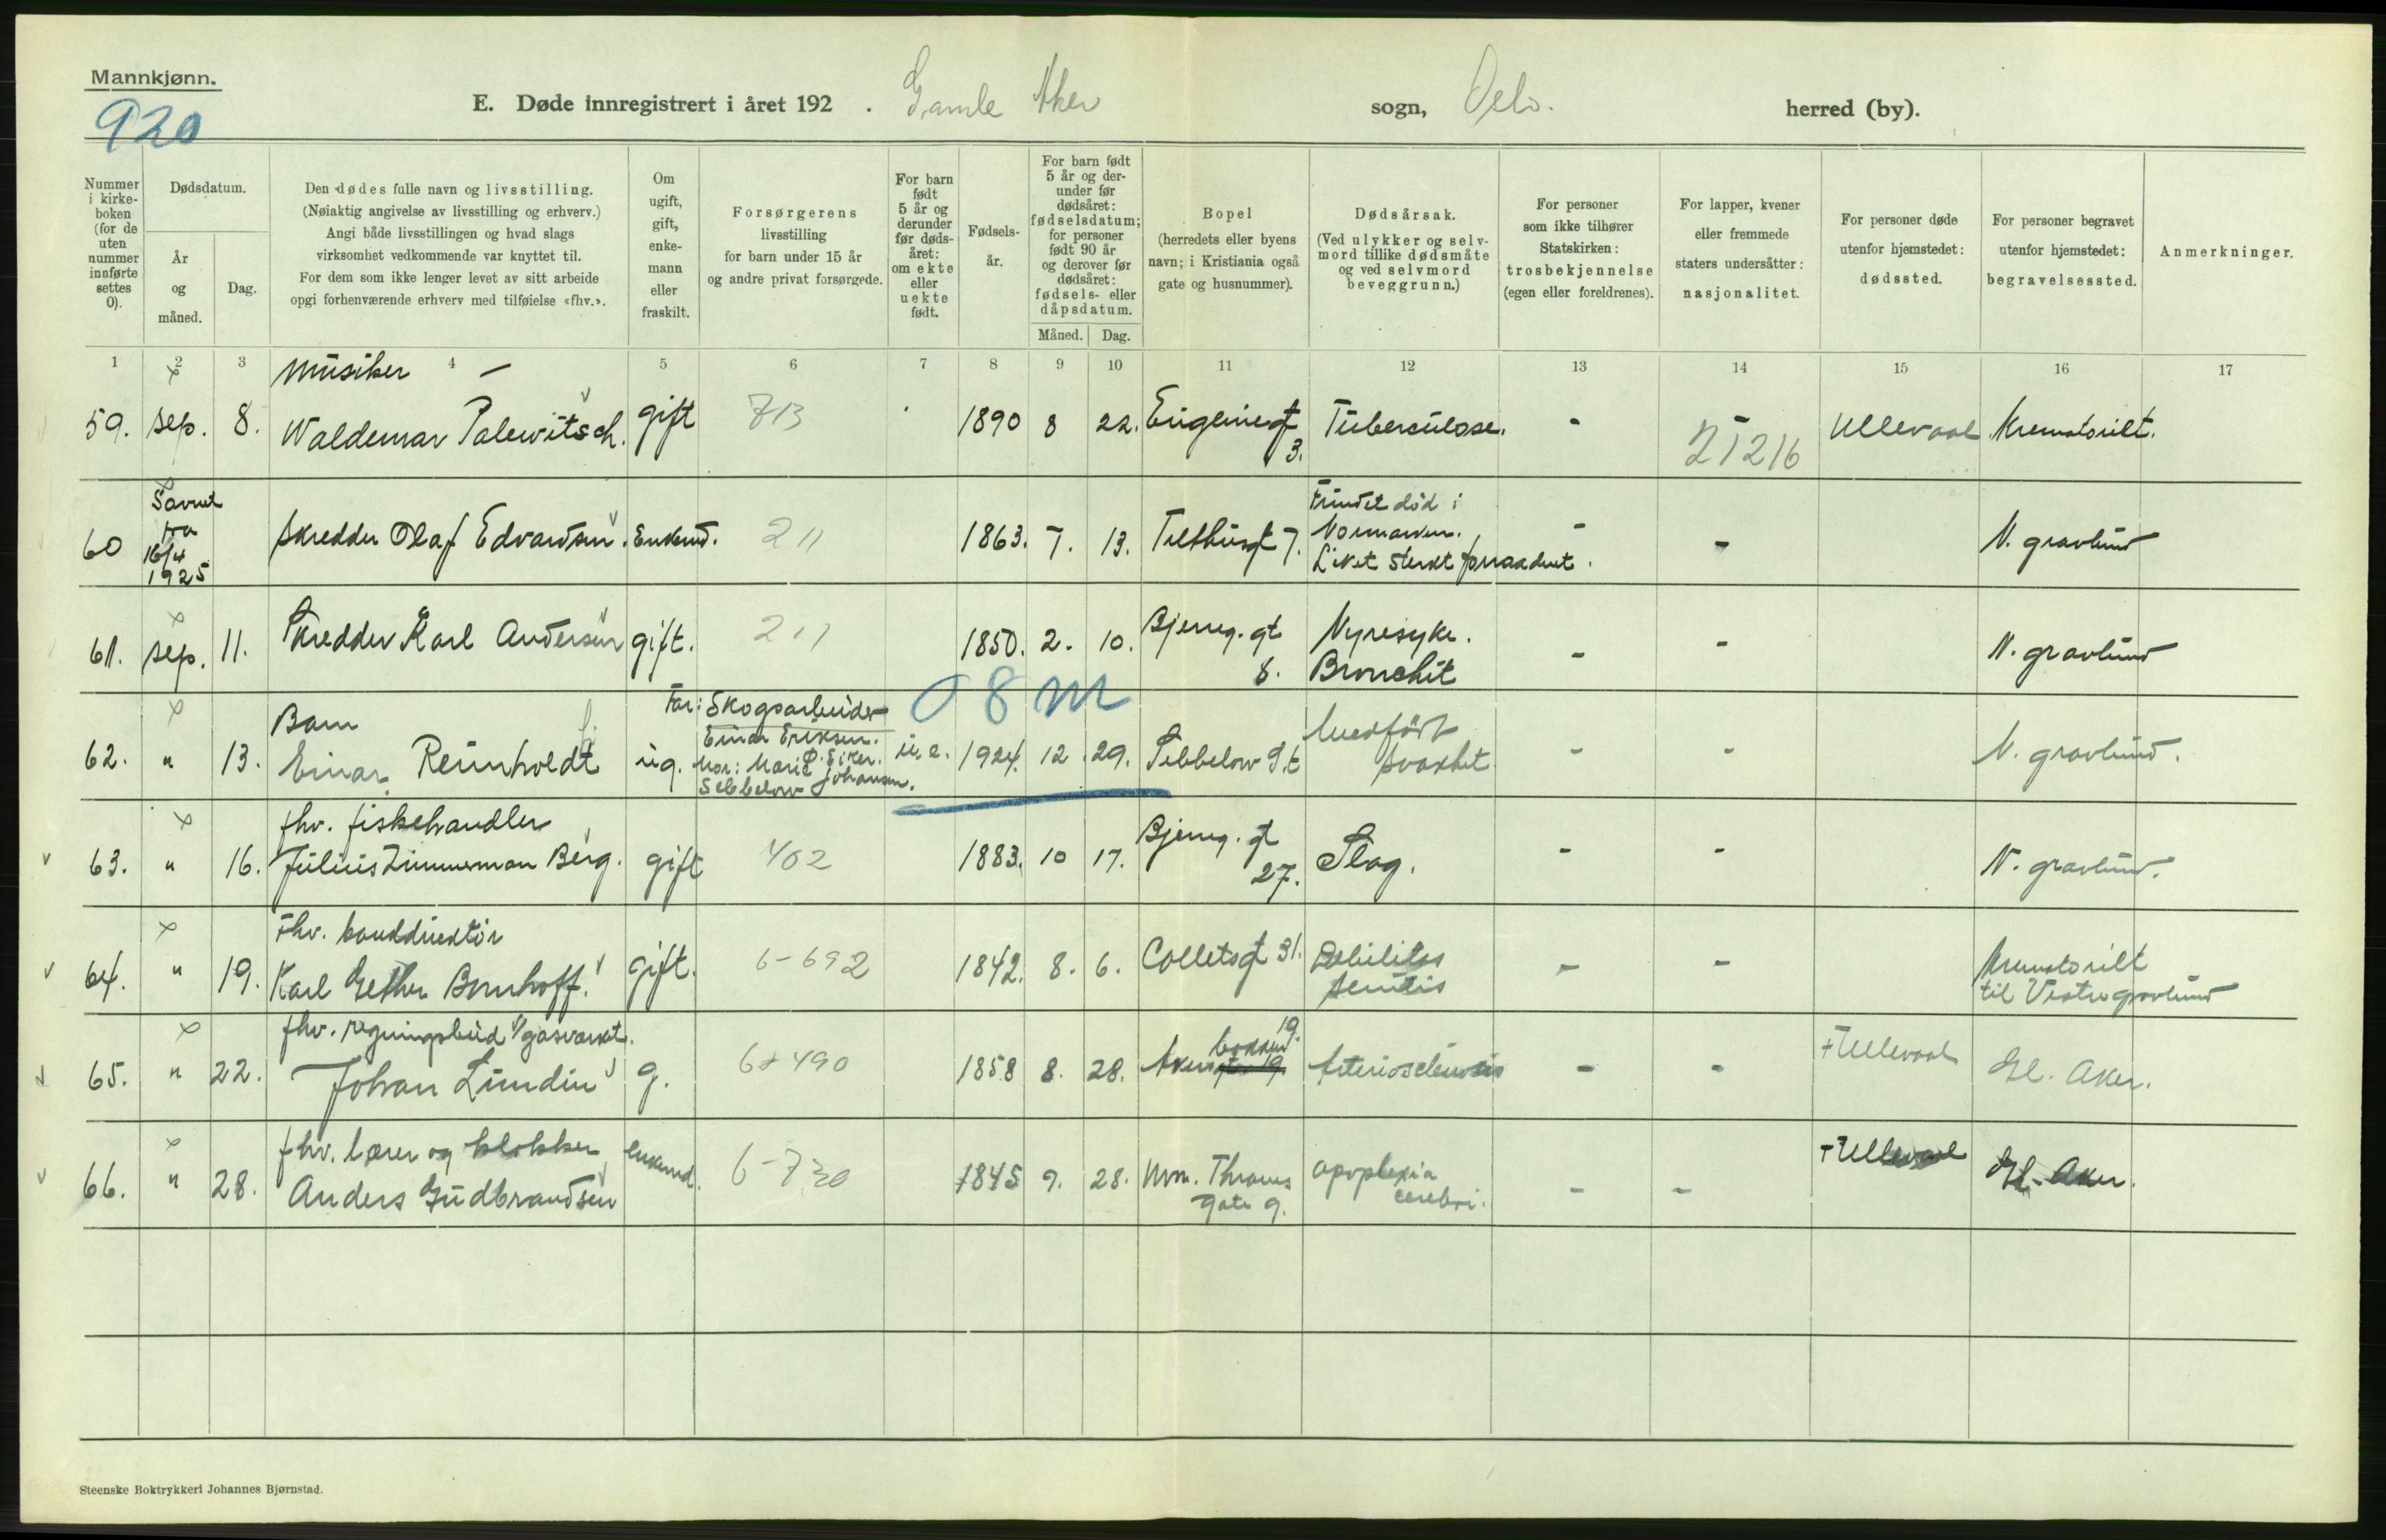 Mannkjønn.
920
E. Døde innregistrert i året 192 . Gamle Aker sogn, Oslo. herred (by).
Nummer i kirkeboken (for de uten nummer innførte settes 0).
Dødsdatum.
År og måned.
Dag.
Den dødes fulle navn og livsstilling.
(Nøiaktig angivelse av livsstilling og erhverv.)
Angi både livsstillingen og hvad slags
virksomhet vedkommende var knyttet til.
For dem som ikke lenger levet av sitt arbeide
opgi forhenværende erhverv med tilføielse «fhv.».
Om ugift, gift, enkemann eller fraskilt.
Forsørgerens
livsstilling
for barn under 15 år
og andre privat forsørgede.
For barn født 5 år og derunder før dødsåret: om ekte eller uekte født.
Fødselsår.
For barn født 5 år og derunder før dødsåret: fødselsdatum; for personer født 90 år og derover før dødsåret: fødsels- eller dåpsdatum.
Måned. Dag.
Bopel
(herredets eller byens
navn; i Kristiania også
gate og husnummer).
Dødsårsak.
(Ved ulykker og selvmord tillike dødsmåte og ved selvmord beveggrunn.)
For personer
som ikke tilhører
Statskirken:
trosbekjennelse
(egen eller foreldrenes).
For lapper, kvener
eller fremmede
staters undersåtter:
nasjonalitet.
For personer døde
utenfor hjemstedet:
dødssted.
For personer begravet
utenfor hjemstedet:
begravelsessted.
Anmerkninger.
1 2 3 4 5 6 7 8 9 10 11 12 13 14 15 16 17
Musiker -
59. Sep. 8. Waldemar Palewitsch. gift 713 1890 8 22. Eugeniegt 3. Tuberculose. - - Ullevaal Krematoriet.
21216
60 Savnet fra 16/4 1925 Skredder Olaf Edvardsen. Enkemd. 211 1863. 7. 13. Telthusgt 7. Fundet død i
Normarken.
Livet sterkt forraadnet. - - N. gravlund
61. Sep. 11. Skredder Karl Andersen gift. 211 1850. 2. 10. Bjerreg. gt 8. Nyresyke.
Bronchit - - N. gravlund
08 m
62. " 13. Barn
Einar Reinholdt ug. Far: Skogsarbeider
Einar Eriksen.
Ø. Eiker.
Mor: Marie Johansen.
Sebbelow u. e. 1924. 12. 29. Sebbelow Gt Medfødt
svakhet - - N. gravlund.
63. " 16. fhv. fiskehandler
Julius Zimmerman Berg. gift 402 1883. 10 17. Bjerreg. gt 27. Slag. - - N. gravlund.
64. " 19. Fhv. bankdirektør
Karl Gether Bomhoff. gift. 6-692 1842. 8. 6. Colletsgt 31. Debilitas
senilis - - Krematoriet
til Vestre gravlund
65. " 22. fhv. regningsbud v/gasverket.
Johan Lundin g. 6 490 1858 8. 28. Akersbakken 19. Arteriosclerosis - - Ullevaal Gl. Aker.
66. " 28. fhv. lærer og klokker
Anders Gudbrandsen enkemd. 6-730 1845 9. 28. Wm. Thranes
gate 9. apoplexia
cerebri. - - Ullevaal Gl. Aker.
Steenske Boktrykkeri Johannes Bjørnstad.